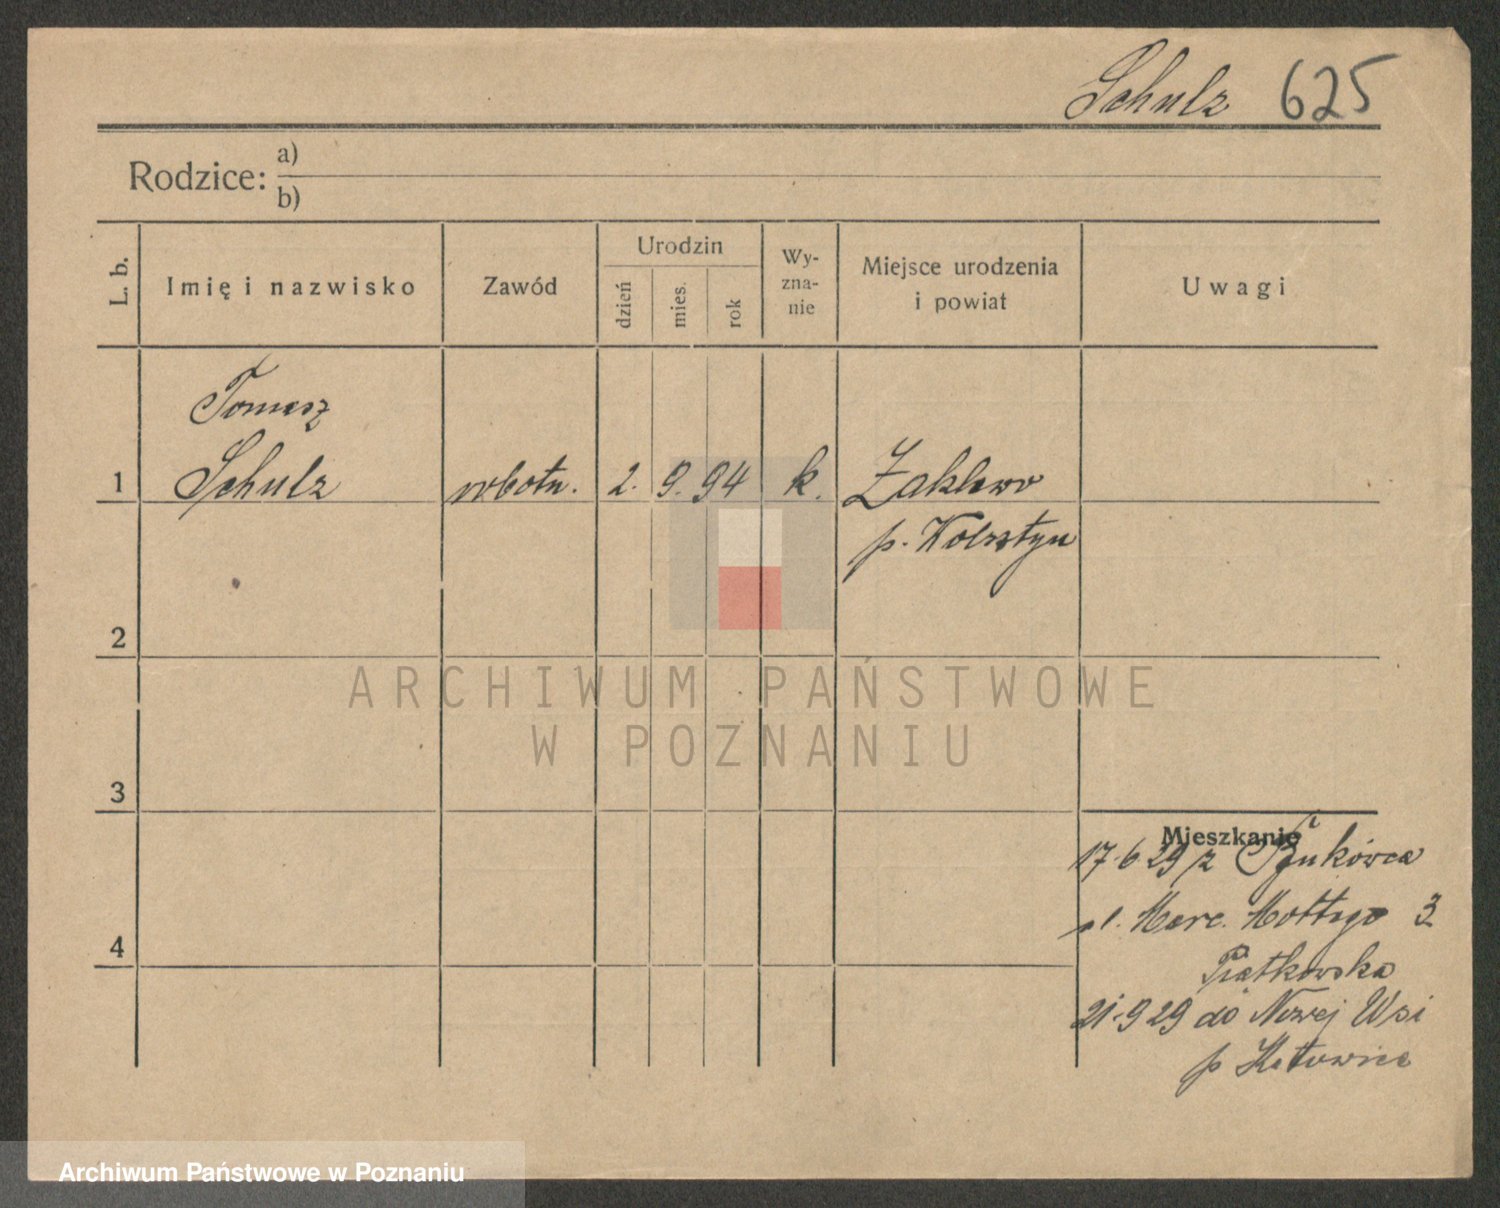 Schulz 625
Rodzice: a)
b)
L. b. Imię i nazwisko Zawód Urodzin dzień mies. rok Wy-zna-nie Miejsce urodzenia i powiat Uwagi
Tomasz
1 Schulz robotn. 2. 9. 94 k. Zaklewo
p. Wolsztyn
2
ARCHIWUM PAŃSTWOWE
W POZNANIU
3
Mieszkanie
17.6 29 z
Marc. Mottego 3
4
Piątkowska
21.9 29 do Nowej Wsi
p Katowice
Archiwum Państwowe w Poznaniu